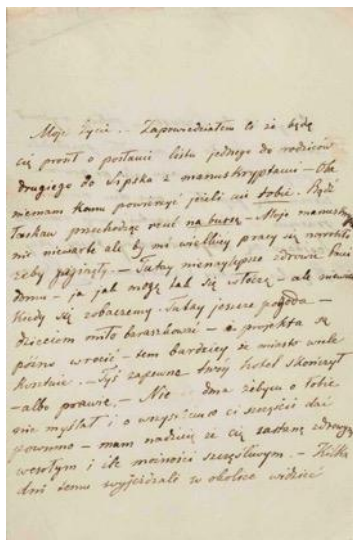 Moje Życie. – Zapowiedziałem Ci że będę
cię prosił o posłanie listu jednego do rodziców
drugiego do Lipska z manuskryptami – Nie
mam komu powierzyć jeżeli nie tobie. Bądź
łaskaw przechodząc rzuć na burse – Moje manuskr
nic niewarte ale by mi wielkiej pracy narobiło
żeby zginęły. – Tutaj nienajlepsze zdrowie Pani
domu – ja jak mogę tak się włóczę – ale niewiem
kiedy się zobaczemy. Tutaj jeszcze pogoda –
dzieciom miło baraszkować – a projekta są
późno wrócić – tem bardziej że miasto wiele
kosztuje. – Tyś zapewne twój hotel skończył
– albo prawie. – Nie dnia żebym o tobie
nie myślał i o wszystkiem ci szczęście dać
powinno – mam nadzieję że cię zastanę zdrowym
wesołym i ile możności szczęśliwym. – Kilka
dni temu wyjeżdżali w okolice widzieć